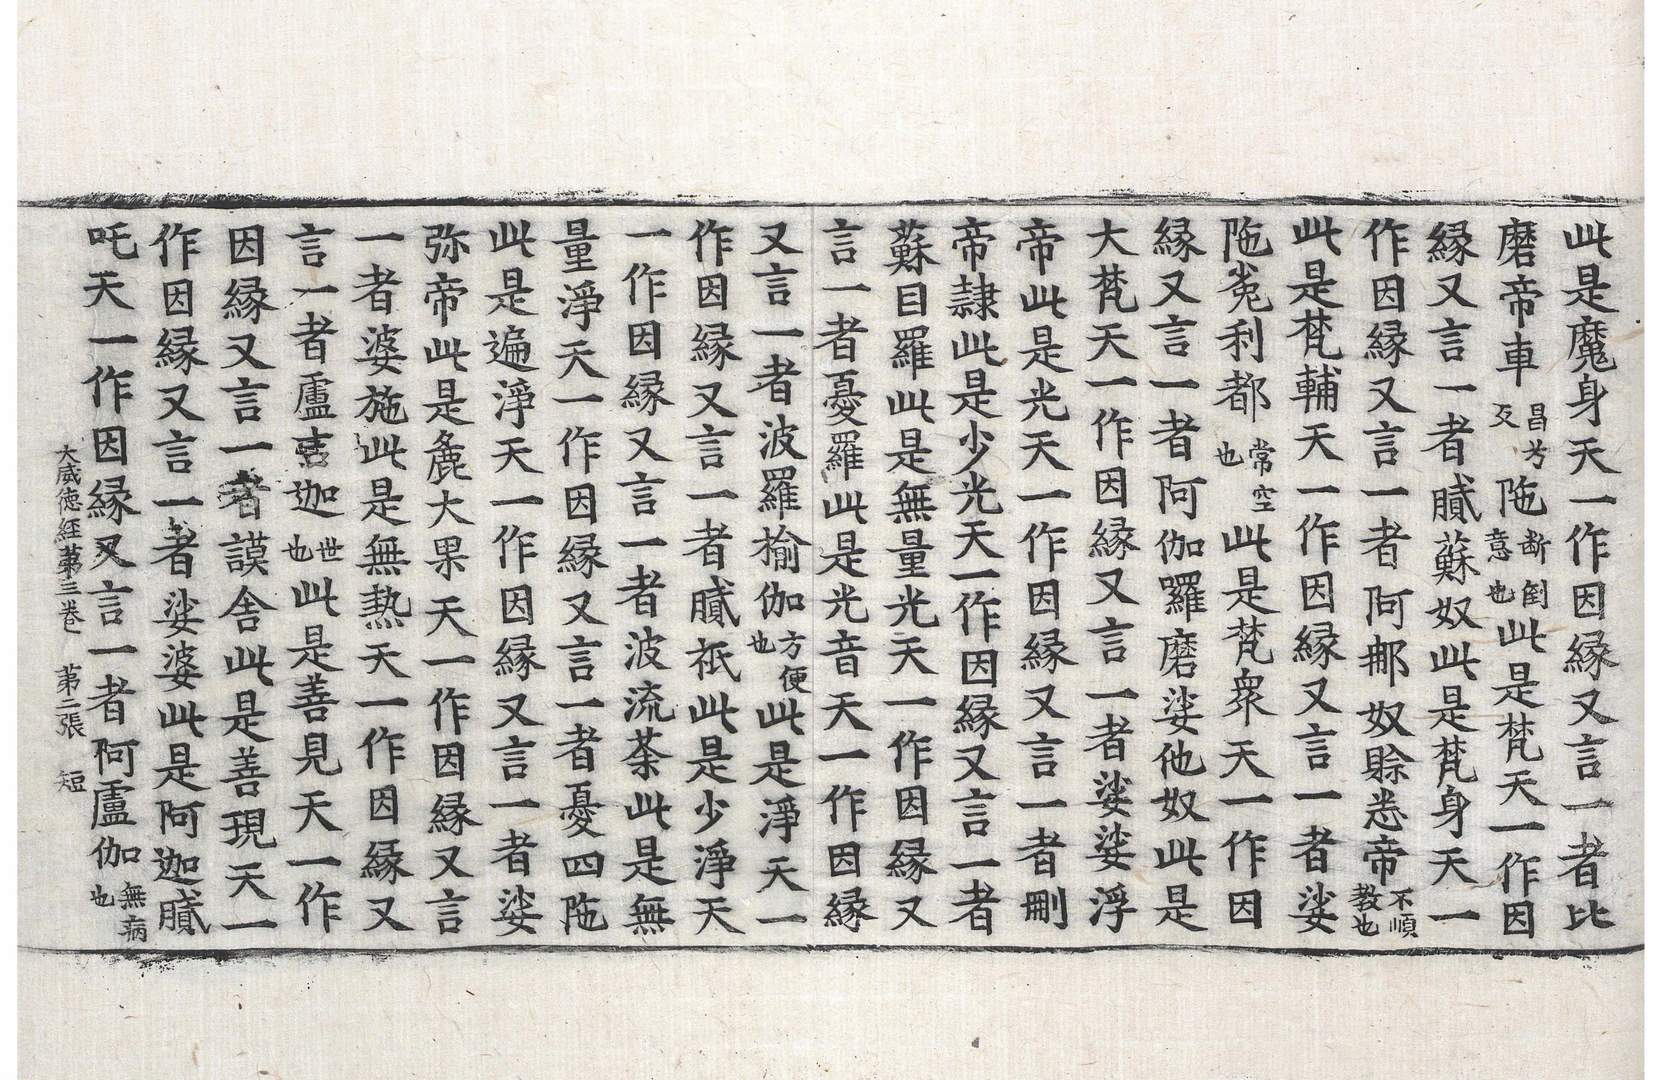 此是魔身天一作因縁又言一者比
磨帝車昌芳反陁断倒意也此是梵天一作因
縁又言一者膩蘇奴此是梵身天一
作因縁又言一者阿那奴賒悉帝不順教也
此是梵輔天一作因縁又言一者娑
陁菟利都常空也此是梵衆天一作因
縁又言一者阿伽囉磨娑他奴此是
大梵天一作因縁又言一者娑娑浮
帝此是光天一作因縁又言一者刪
帝隷此是少光天一作因縁又言一者
蘇目羅此是無量光天一作因縁又
言一者憂羅此是光音天一作因縁
又言一者波羅揄伽方便也此是淨天一
作因縁又言一者膩祇此是少淨天
一作因縁又言一者波流荼此是無
量淨天一作因縁又言一者憂四陁
此是遍淨天一作因縁又言一者娑
弥帝此是麁大果天一作因縁又言
一者婆施此是無熱天一作因縁又
言一者盧迦世也此是善見天一作
因縁又言一者謨舎此是善現天一
作因縁又言一者娑婆此是阿迦膩
吒天一作因縁又言一者阿盧伽無病也
大威徳経第三巻 第二張 短